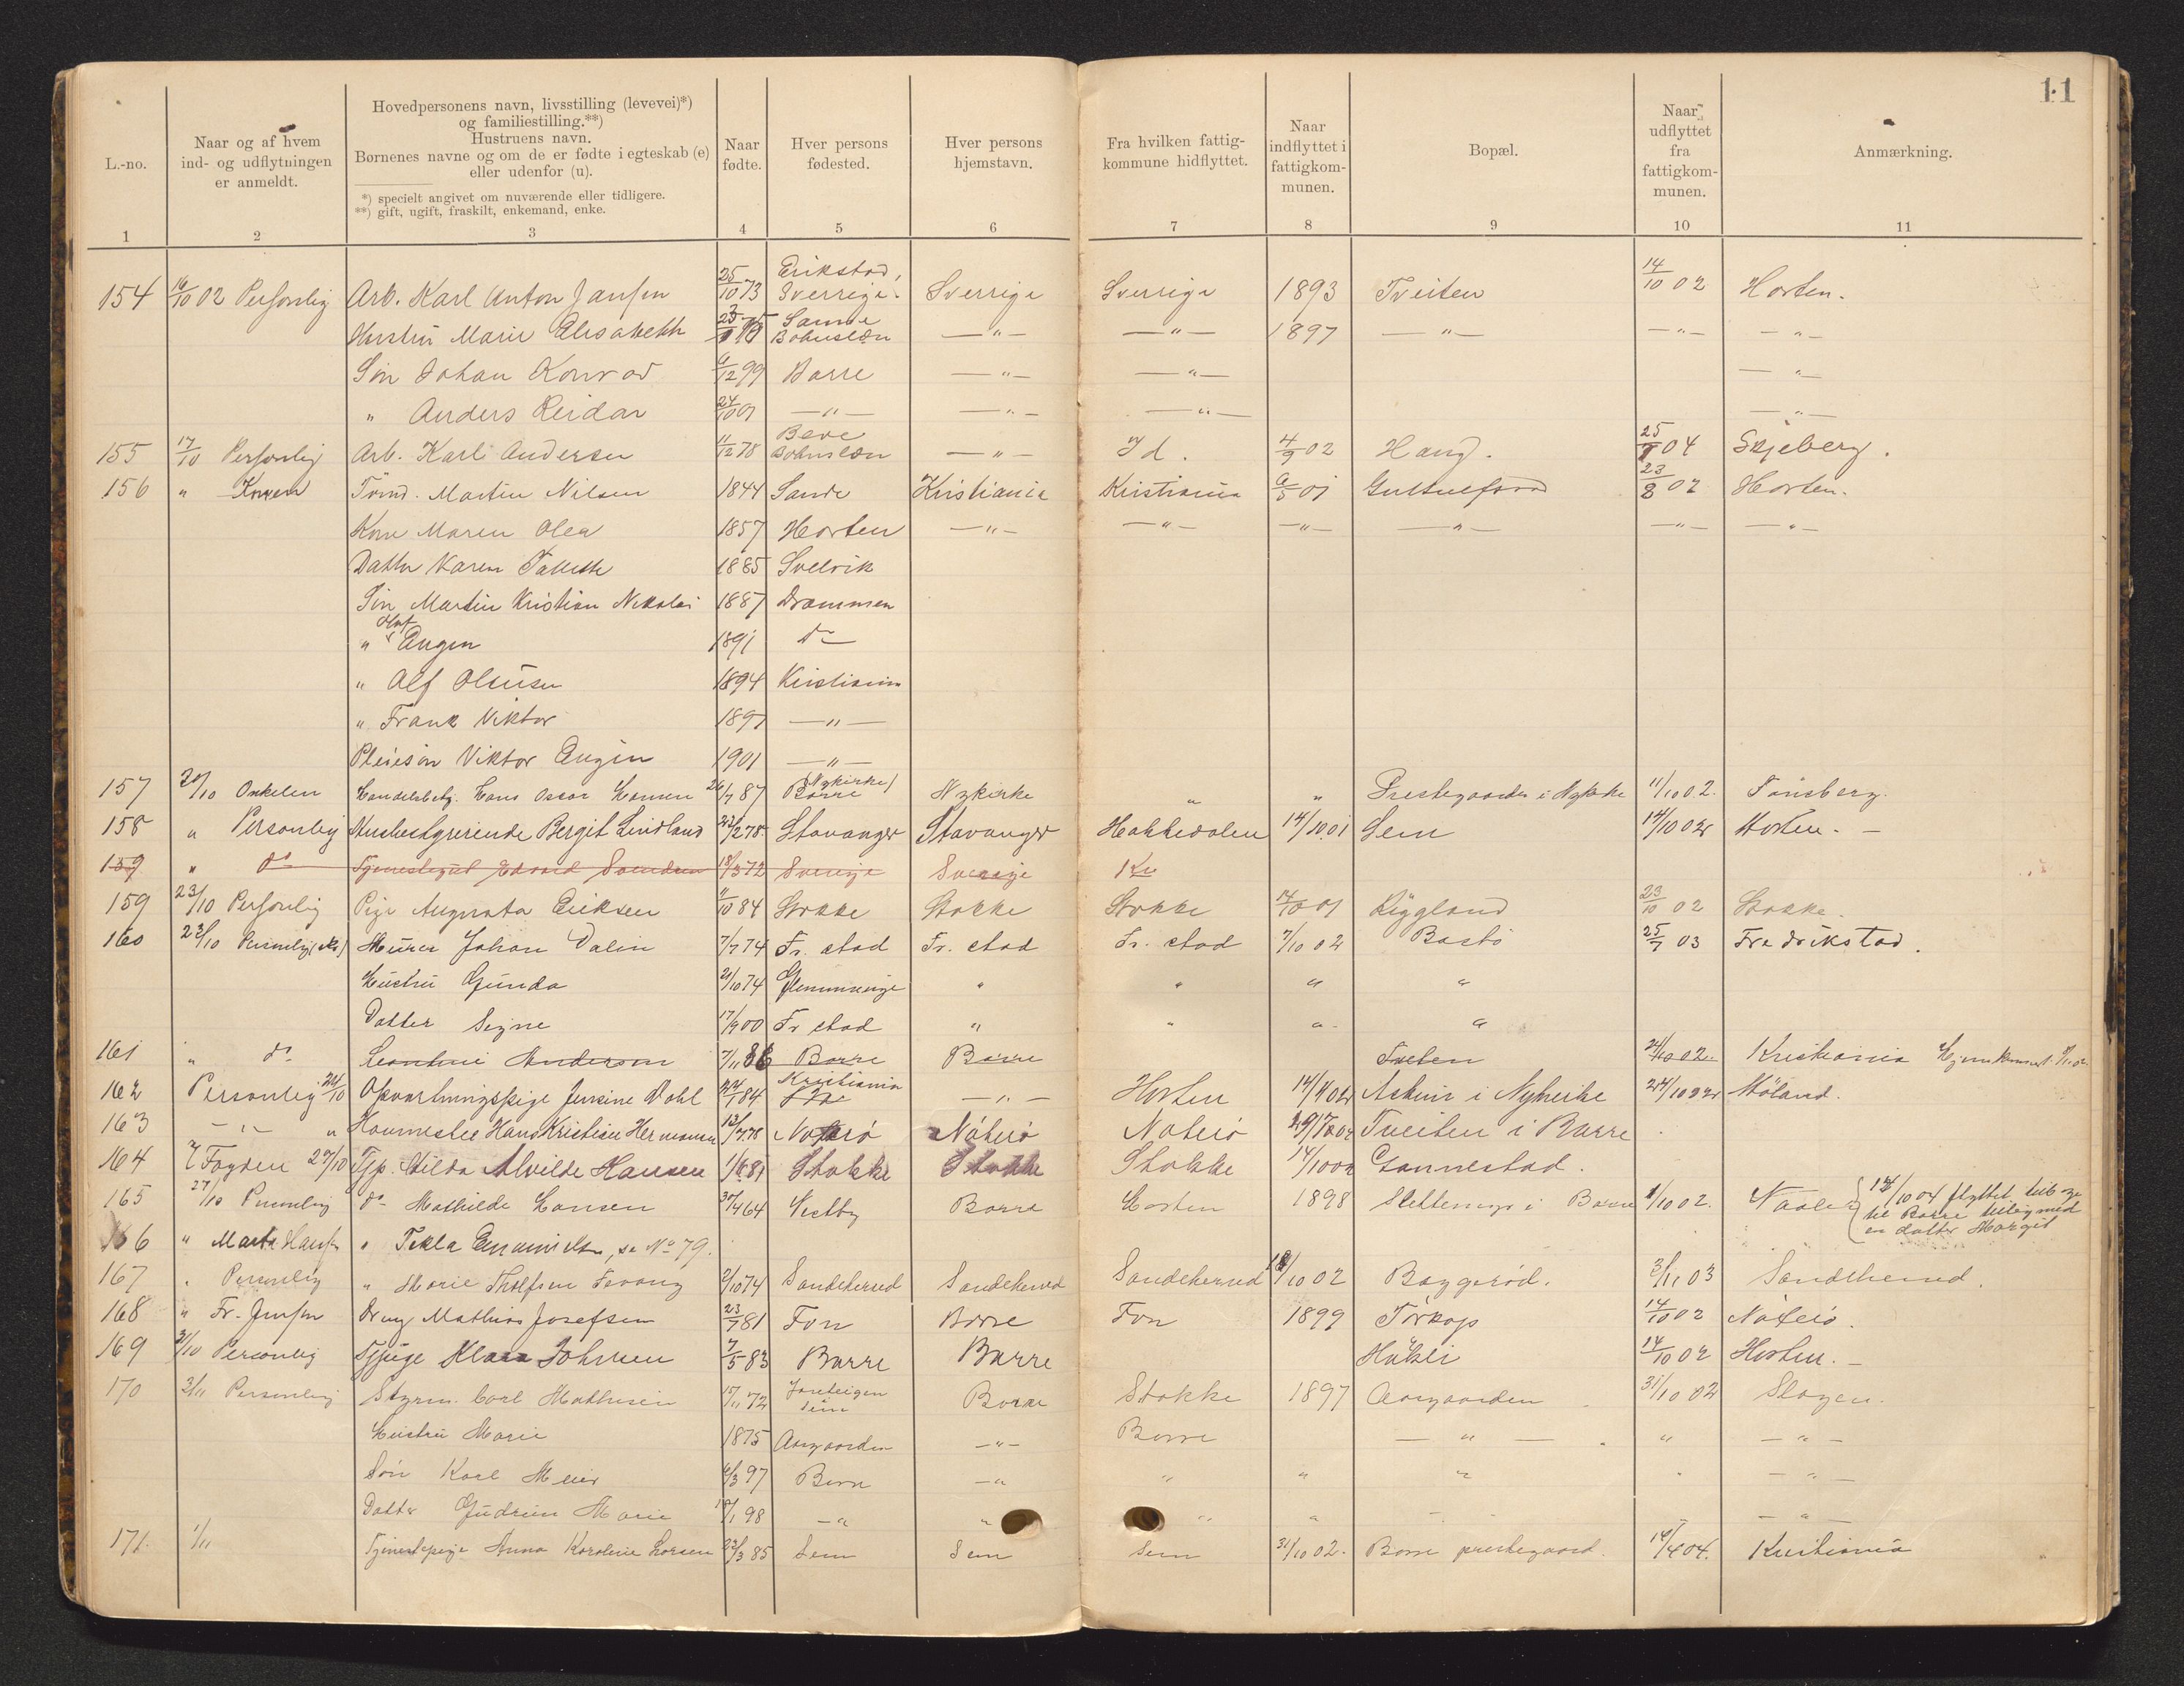 11
L.-no.
Naar og af hvem
ind- og udflytningen
er anmeldt.
Hovedpersonens navn, livsstilling (levevei)*)
og familiestilling.**)
Hustruens navn.
Børnenes navne og om de er fødte i egteskab (e)
eller udenfor (u).
*) specielt angivet om nuværende eller tidligere.
**) gift, ugift, fraskilt, enkemand, enke.
Naar
fødte.
Hver persons
fødested.
Hver persons
hjemstavn.
Fra hvilken fattig-
kommune hidflyttet.
Naar
indflyttet i
fattigkom-
munen.
Bopæl.
Naar
udflyttet
fra
fattigkom-
munen.
Anmærkning.
1 2 3 4 5 6 7 8 9 10 11
154 16/10 02 Personlig Arb. Karl Anton Jansen 25/10 73 Erikstad, Sverrige Sverrige Sverrige 1893 Tveiten 14/10 02 Horten.
Hustru Marie Elisabeth Bohuslæn —"— —"— 1897 —"— —"— —"—
Søn Johan Konrad 6/12 99 Borre —"— —"— —"—
" Anders Reidar 24/10 01 —"— —"— —"— —"—
155 17/10 Personlig Arb. Karl Andersen 11/12 78 Bohuslæn —"— Id. 4/9 02 Haug. 25/1 04 Skjeberg.
156 " Konen Tømd. Martin Nilsen 1844 Sande Kristiania Kristiania 6/5 01 23/8 02 Horten.
Kone Maren Olea 1857 Horten —"— —"— —"— —"— —"— —"—
Datter Karen 1885 Svelvik
Søn Martin Kristian Nikolai 1887 Drammen
" Olaf Eugen 1891 do
" Alf 1894 Kristiania
" Frank Viktor 1897 —"—
Pleiesøn Viktor Eugen 1901 —"—
157 20/10 Onkelen Handelsbetj. Hans Oscar Hansen 26/7 87 Borre (Nykirke) Nykirke " " Prestegaarden i Nykirke 11/10 02. Tønsberg.
158 " Personlig Husbestyrerinde Bergit Lindland 23/2 78 Stavanger Stavanger Hakkedalen 14/10 01 Sem 14/10 02 Horten. —
159 " do Tjenestegut Edvard Svendsen 18/3 72 Sverige Sverige
159 23/10 Personlig Pige Augusta Eriksen 11/10 84 Stokke Stokke Stokke 14/10 01 Rygland 23/10 02 Stokke.
160 23/10 Murer Johan Dalin 7/7 74 Fr. stad Fr. stad Fr. stad 7/10 02 Bastø 25/7 03 Fredrikstad.
Hustru Gunda 21/10 74 Glemminge " " " "
Datter Signe 17/9 00 Fr stad " " " "
161 " do Leontine Andersen 7/11 86 Borre Borre Tveten 24/10 02. Kristiania
162 Personlig 24/10 Opvartningspige Jensine Dahl 24/1 84 Kristiania —"— Horten 14/4 02 Askim i Nykirke 24/10 02 Moland.
163 —"— " Hans Kristian Hermansen 13/7 78 Nøterø Nøterø Nøterø Tveiten i Borre
164 Fogden 27/10 Tjp. Hilda Alvilde Hansen 1/6 81 Stokke Stokke Stokke 14/10 02 Gannestad.
165 27/10 Personlig do Mathilde Hansen 30/4 64 Vestby Borre Horten 1898 i Borre 1/10 02. Vaale { 14/10 04 flyttet tilbage til Borre tilligemed en datter Margit
166 " Marta Hansen " Tekla Emanuelsen, se No 79.
167 " Personlig " Marie Tholfsen 2/10 74 Sandeherred Sandeherred Sandeherred 18/10 02 Baggerød. 3/11 03 Sandeherred.
168 " Fr. Jensen Dreng Mathias Josefsen 23/7 81 Fon Borre Fon 1899 Torkop 14/10 02 Nøterø.
169 31/10 Personlig Tjpige Klara Johnsen 7/5 83 Borre Borre 14/10 02 Horten. —
170 3/11 Personlig Styrm. Carl Mathisen 17/11 72 Sem Borre Stokke 1897 Aasgaarden 31/10 02 Slagen.
Hustru Marie 1875 Aasgaarden —"— Borre —"— " —"—
Søn Karl Meier 6/3 97 Borre —" " " " " —"—
Datter Gudrun Marie 98 —" " " " —"—
171. 1/11 Tjenestepige Anna Karoline Larsen 23/3 85 Sem Sem Sem 31/10 02. Borre prestegaard. 14/4 04. Kristiania